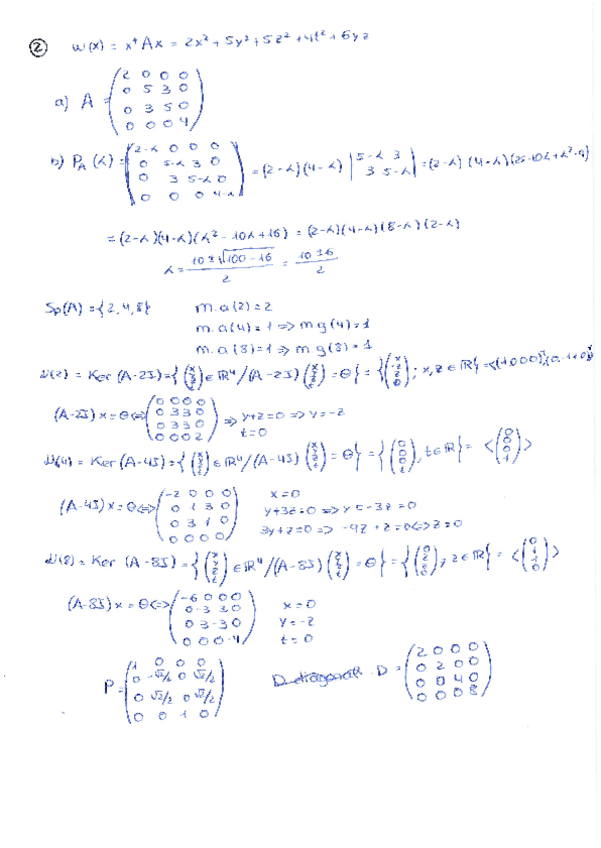 ② ω(x) = xᵗAx = 2x² + 5y² + 5z² + 4t² + 6yz
a) A = (2 0 0 0
0 5 3 0
0 3 5 0
0 0 0 4)
b) P_A(λ) = (2-λ 0 0 0
0 5-λ 3 0
0 3 5-λ 0
0 0 0 4-λ) = (2-λ)(4-λ) |5-λ 3
3 5-λ| = (2-λ)(4-λ)(25-10λ+λ²-9)
= (2-λ)(4-λ)(λ²-10λ+16) = (2-λ)(4-λ)(8-λ)(2-λ)
λ = (10±√100-16)/2 = (10±6)/2
Sp(A) = {2,4,8} m.a(2)=2
m.a(4)=1 => m g(4)=1
m.a(8)=1 => m g(8)=1
(2) = Ker (A-2I) = {(x y z t) ∈ ℝ⁴ / (A-2I)(x y z t) = θ} = {(x -z z 0); x,z ∈ ℝ} = <(1 0 0 0),(0,-1 1 0)>
(A-2I)x = θ <=> (0 0 0 0
0 3 3 0
0 3 3 0
0 0 0 2) => y+z=0 => y=-z
t=0
(4) = Ker (A-4I) = {(x y z t) ∈ ℝ⁴ / (A-4I)(x y z t) = θ} = {(0 0 0 t), t ∈ ℝ} = <(0 0 0 1)>
(A-4I)x = θ <=> (-2 0 0 0
0 1 3 0
0 3 1 0
0 0 0 0) x=0
y+3z=0 => y=-3z=0
3y+z=0 => -9z+z=0 <=> z=0
(8) = Ker (A-8I) = {(x y z t) ∈ ℝ⁴ / (A-8I)(x y z t) = θ} = {(0 z z 0); z ∈ ℝ} = <(0 1 1 0)>
(A-8I)x = θ <=> (-6 0 0 0
0 -3 3 0
0 3 -3 0
0 0 0 -4) x=0
y=-z
t=0
P = (1 0 0 0
0 -√2/2 0 √2/2
0 √2/2 0 √2/2
0 0 1 0) D diagonal D = (2 0 0 0
0 2 0 0
0 0 4 0
0 0 0 8)